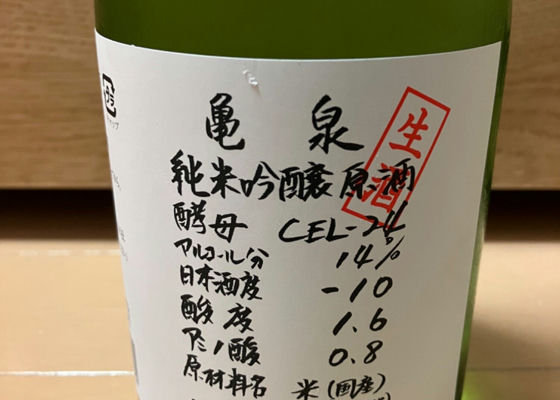 亀泉
生酒
純米吟醸原酒
酵母 CEL-24
アルコール分 14%
日本酒度 -10
酸度 1.6
アミノ酸 0.8
原材料名 米(国産)